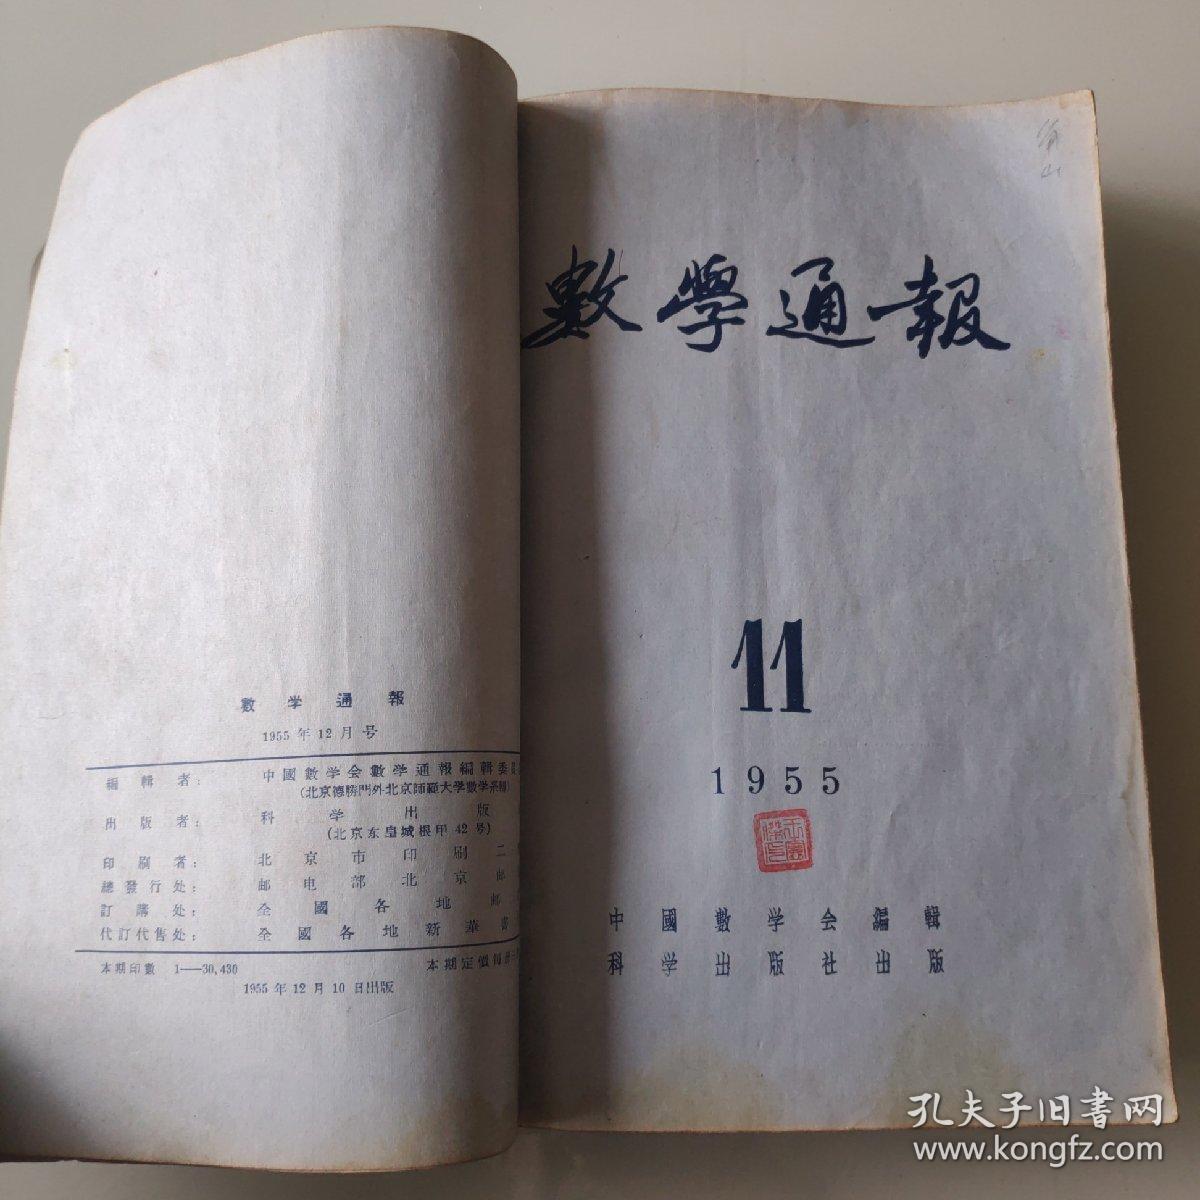 數学通報
1955年12月号
編輯者: 中國數学会數学通報編輯委員
(北京德勝門外北京師範大学數学系轉)
出版者: 科学出版
(北京东皇城根甲42号)
印刷者: 北京市印刷二
總發行处: 邮电部北京邮
訂購处: 全國各地邮
代訂代售处: 全國各地新華書
本期印數 1—30,430 本期定價每册
1955年12月10日出版
山
數學通報
11
1955
中國數学会編輯
科学出版社出版
孔夫子旧书网
www.kongfz.com